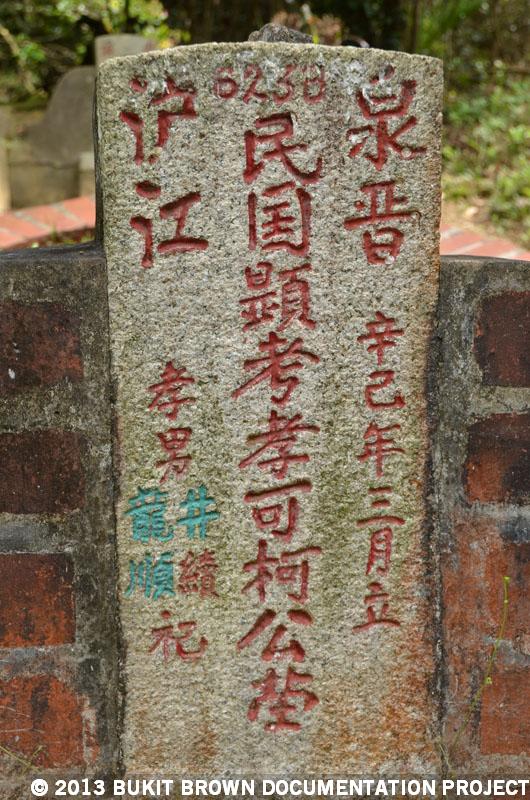 6238
泉晋
辛己年三月立
民国顕考孝可柯公茔
沪江
孝男
井續
龍順
祀
© 2013 BUKIT BROWN DOCUMENTATION PROJECT